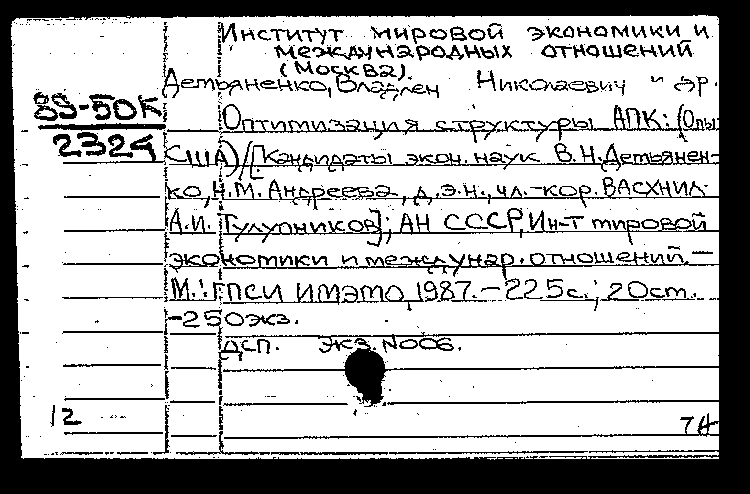 Институт мировой экономики и
международных отношений
(Москва).
Демьяненко, Владлен Николаевич и др.
88-50К
2324
Оптимизация структуры АПК: (Опы
США)/[Кандидаты экон. наук В.Н. Демьянен-
ко, Н.М. Андреева, д.э.н., чл.-кор. ВАСХНИЛ
А.И. Тулупников]; АН СССР, Ин-т мировой
экономики и междунар. отношений.—
М.: ГПСИ ИМЭМО, 1987.—225с.; 20см.
-250экз.
ДСП. Экз. №006.
12